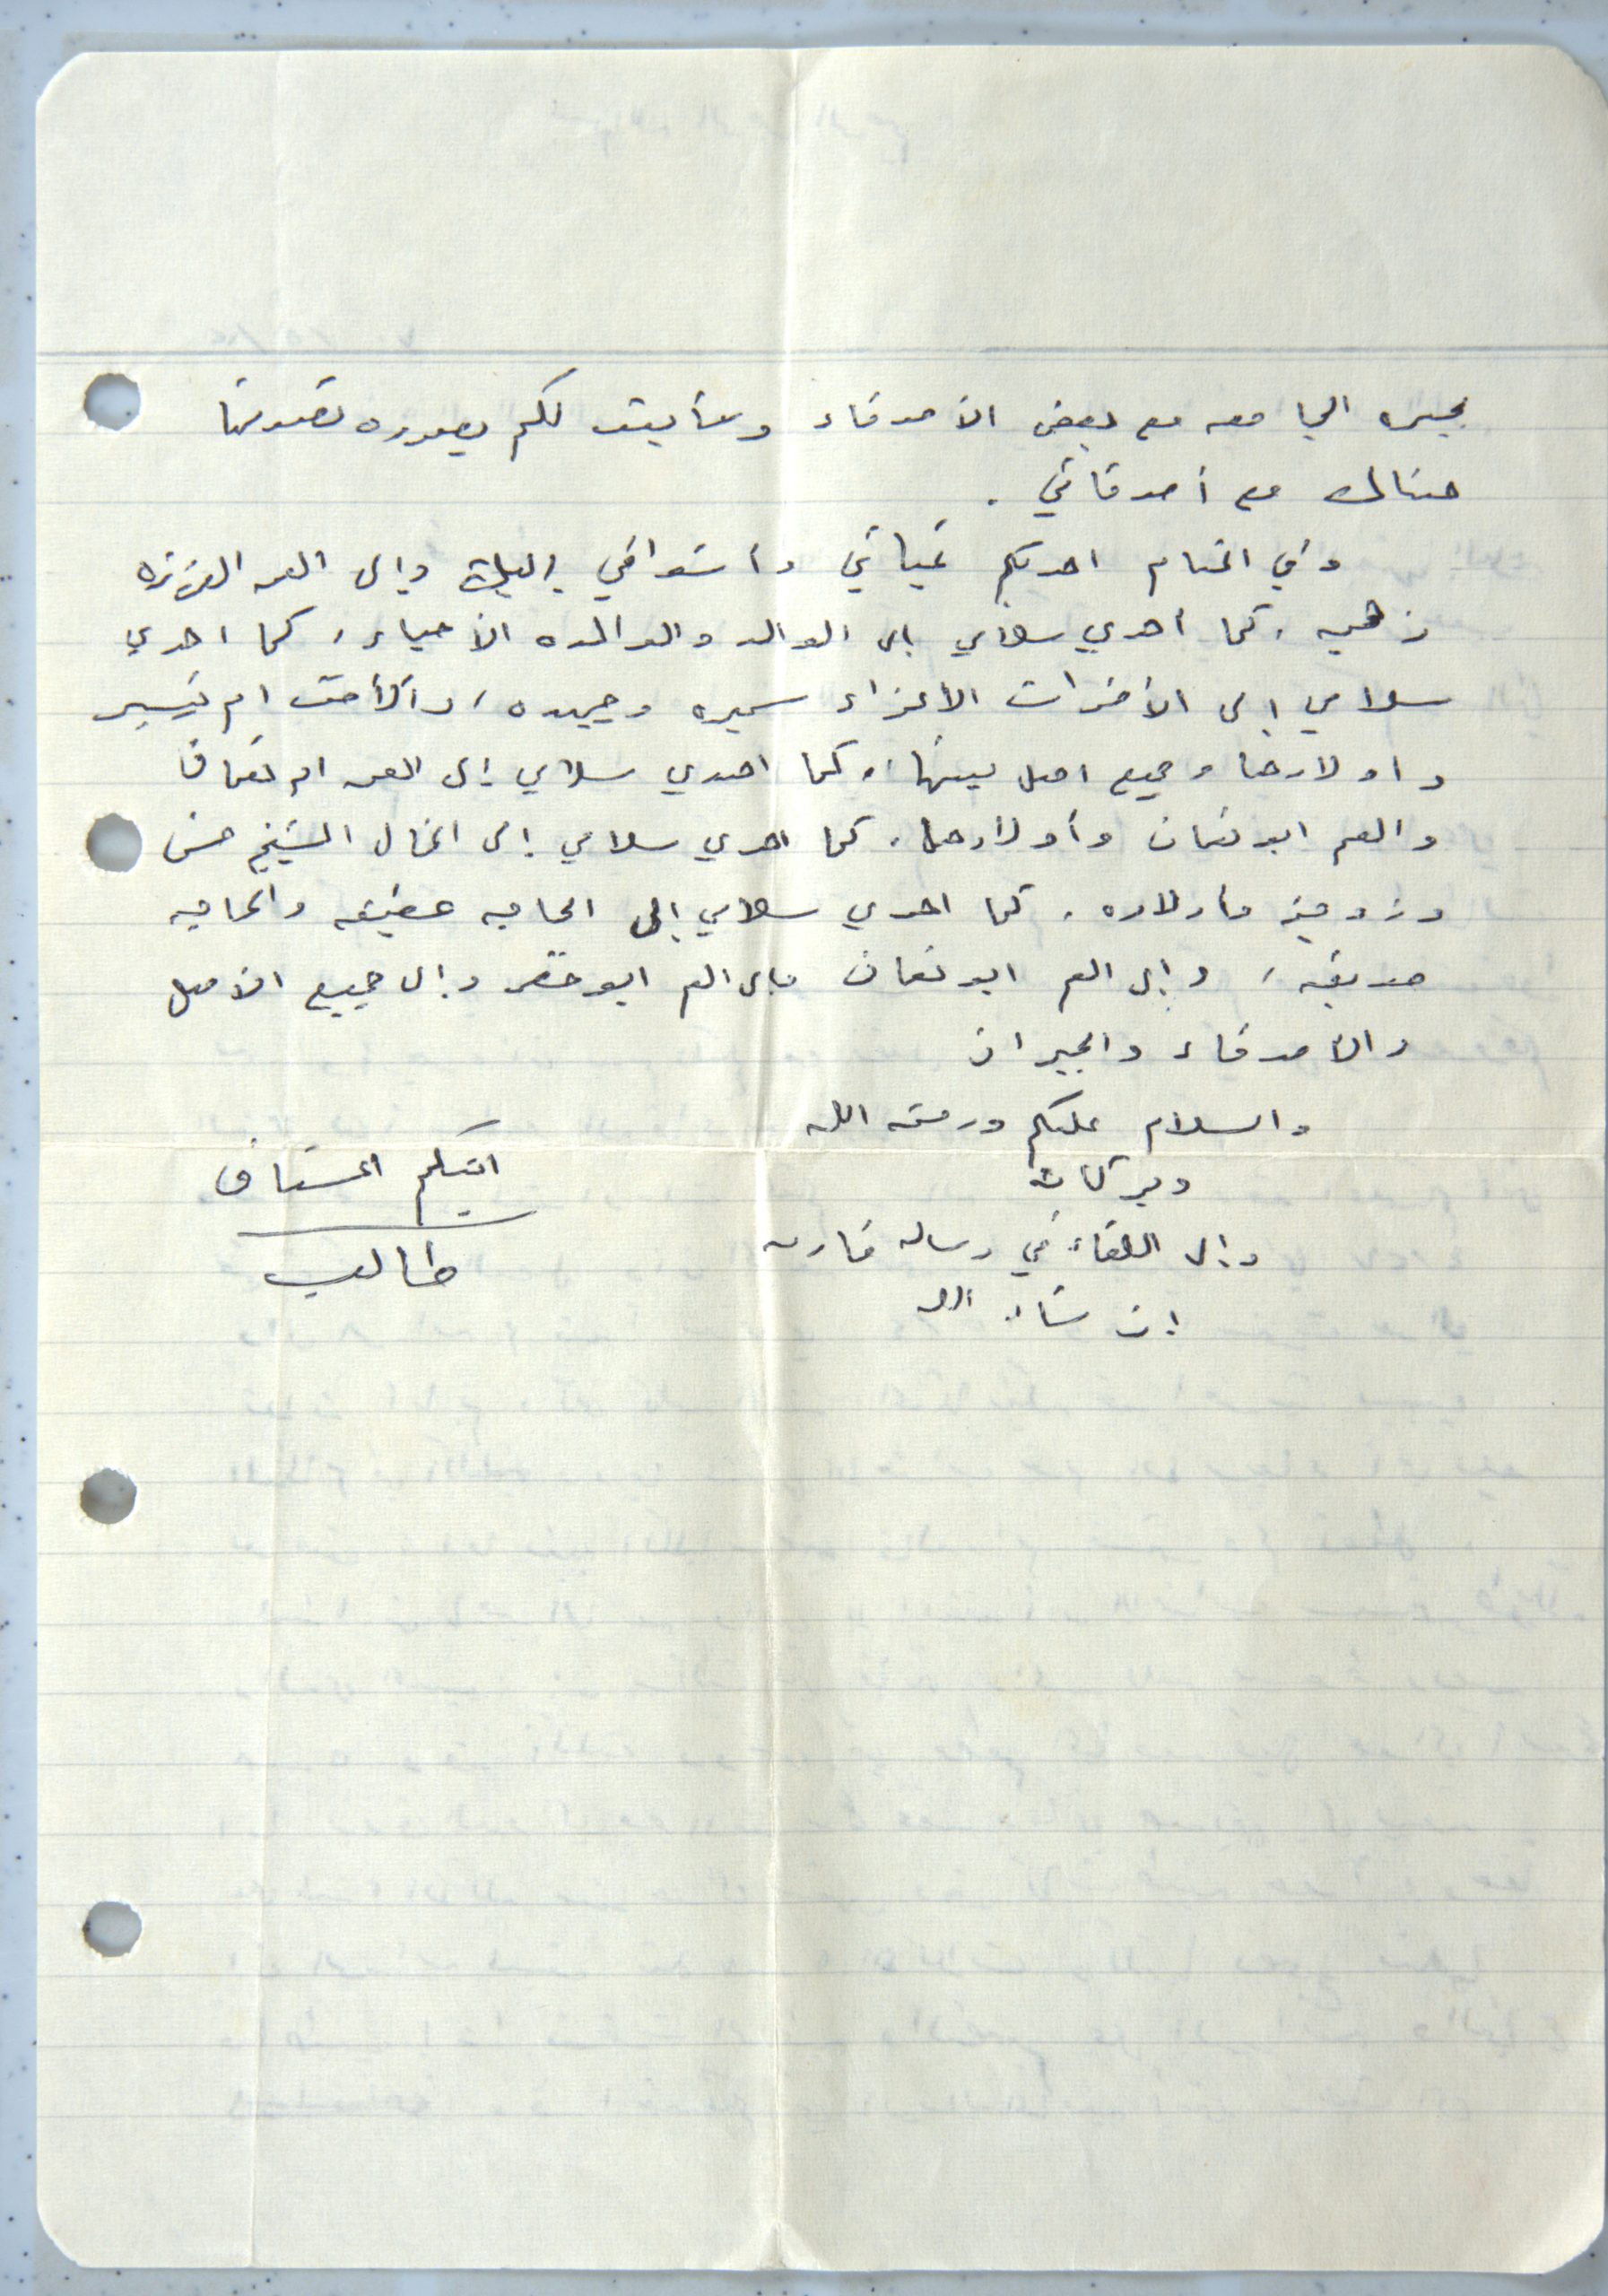 بحيره الجامعه مع بعض الأصدقاء وسأبعث لكم بصوره تصورتها
هنالك مع أصدقائي .
وفي الختام اهديكم تحياتي وأشواقي إليكم وإلى العمه العزيزه
زهيه ، كما أهدي سلامي إلى الوالد والوالده الأحباء ، كما اهدي
سلامي إلى الأخوات الأعزاء سميره وحميده ، والأخت ام تيسير
واولادها وجميع اهل بيتها ، كما اهدي سلامي إلى العمه ام نعمان
والعم ابو نعمان وأولادهما ، كما اهدي سلامي إلى الخال الشيخ حسن
وزوجته وأولاده ، كما اهدي سلامي إلى الحاجه عفيفه والحاجه
صديقه ، وإلى العم ابو نعمان وإلى العم ابو خضر وإلى جميع الأهل
والأصدقاء والجيران
والسلام عليكم ورحمة الله
وبركاته
وإلى اللقاء في رساله قادمه
إن شاء الله
ابنكم المشتاق
طالب